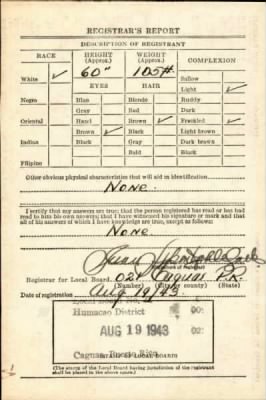 REGISTRAR'S REPORT
DESCRIPTION OF REGISTRANT
RACE HEIGHT (Approx.) WEIGHT (Approx.) COMPLEXION
60" 105# Sallow
White ✓ Light ✓
EYES HAIR
Negro Blue Blonde Ruddy
Gray Red Dark
Oriental Hazel Brown ✓ Freckled ✓
Brown ✓ Black Light brown
Indian Black Gray Dark brown
Bald Black
Filipino
Other obvious physical characteristics that will aid in identification
None.
I certify that my answers are true; that the person registered has read or has had read to him his own answers; that I have witnessed his signature or mark and that all of his answers of which I have knowledge are true, except as follows:
None.
Juan
Registrar for Local Board 021 Caguas P.R.
(Number) (City or county) (State)
Date of registration Aug 19/43.
Humacao District
AUG 19 1943
Caguas, Puerto Rico
(STAMP OF LOCAL BOARD)
(The stamp of the Local Board having jurisdiction of the registrant shall be placed in the above space.)